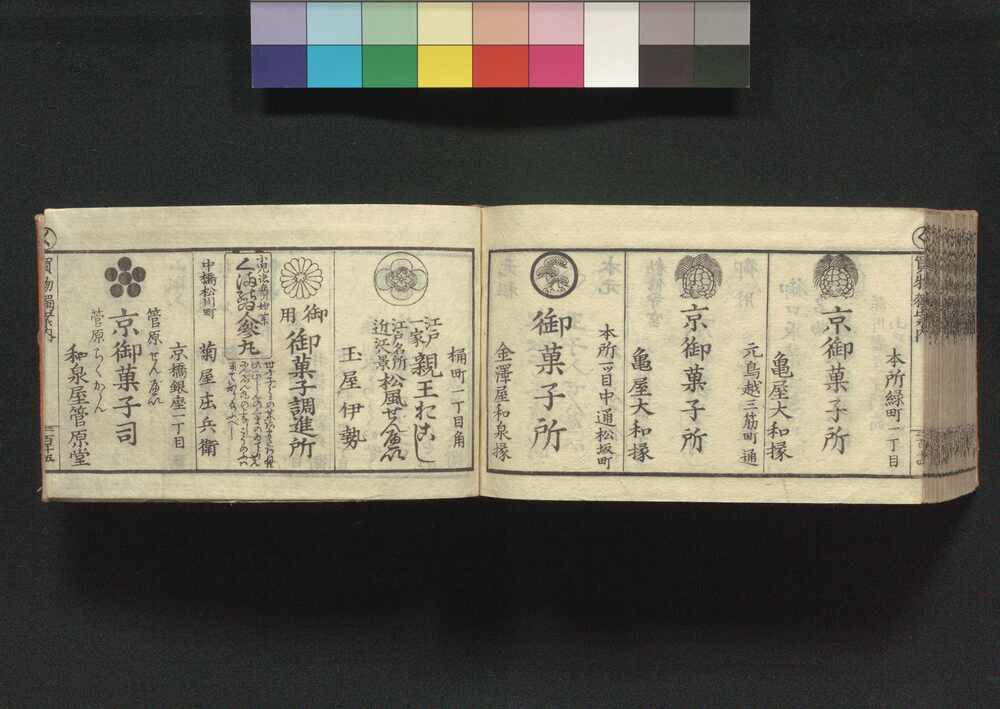 本所緑町一丁目
京御菓子所
亀屋大和掾
元鳥越三筋町通
京御菓子所
亀屋大和掾
本所一ツ目中通松坂町
御菓子所
金澤屋和泉掾
桶町一丁目角
江戸一家
親王おこし
江戸名所
近江八景
松風せんべい
玉屋伊勢
御用
御菓子調進所
中橋松川町
菊屋庄兵衛
京橋銀座一丁目
菅原せんべい
京御菓子司
菅原らくかん
和泉屋菅原堂